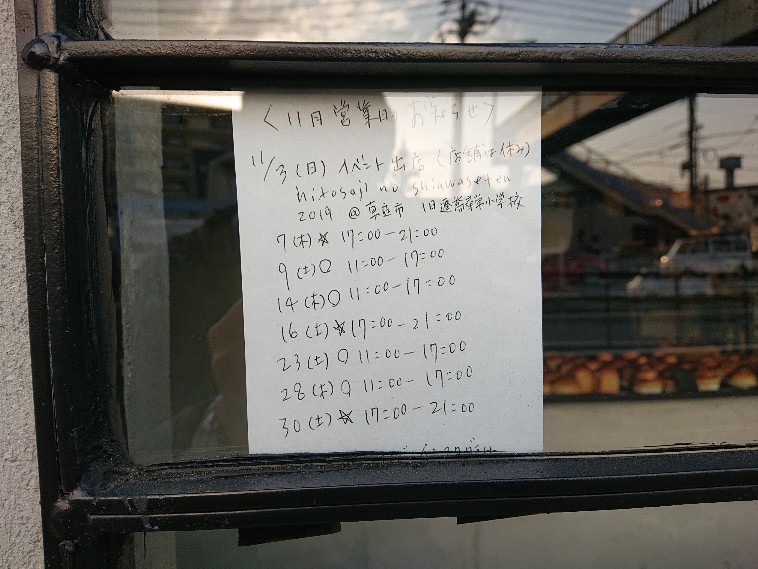 〈11月営業日のお知らせ〉
11/3(日)イベント出店(店舗は休み)
hitosaji no shiawaseten
2019 @真立市 旧逢善寺小学校
7(木)☆ 17:00-21:00
9(土)○ 11:00-17:00
14(木)○ 11:00-17:00
16(土)☆ 17:00-21:00
23(土)○ 11:00-17:00
28(木)○ 11:00-17:00
30(土)☆ 17:00-21:00